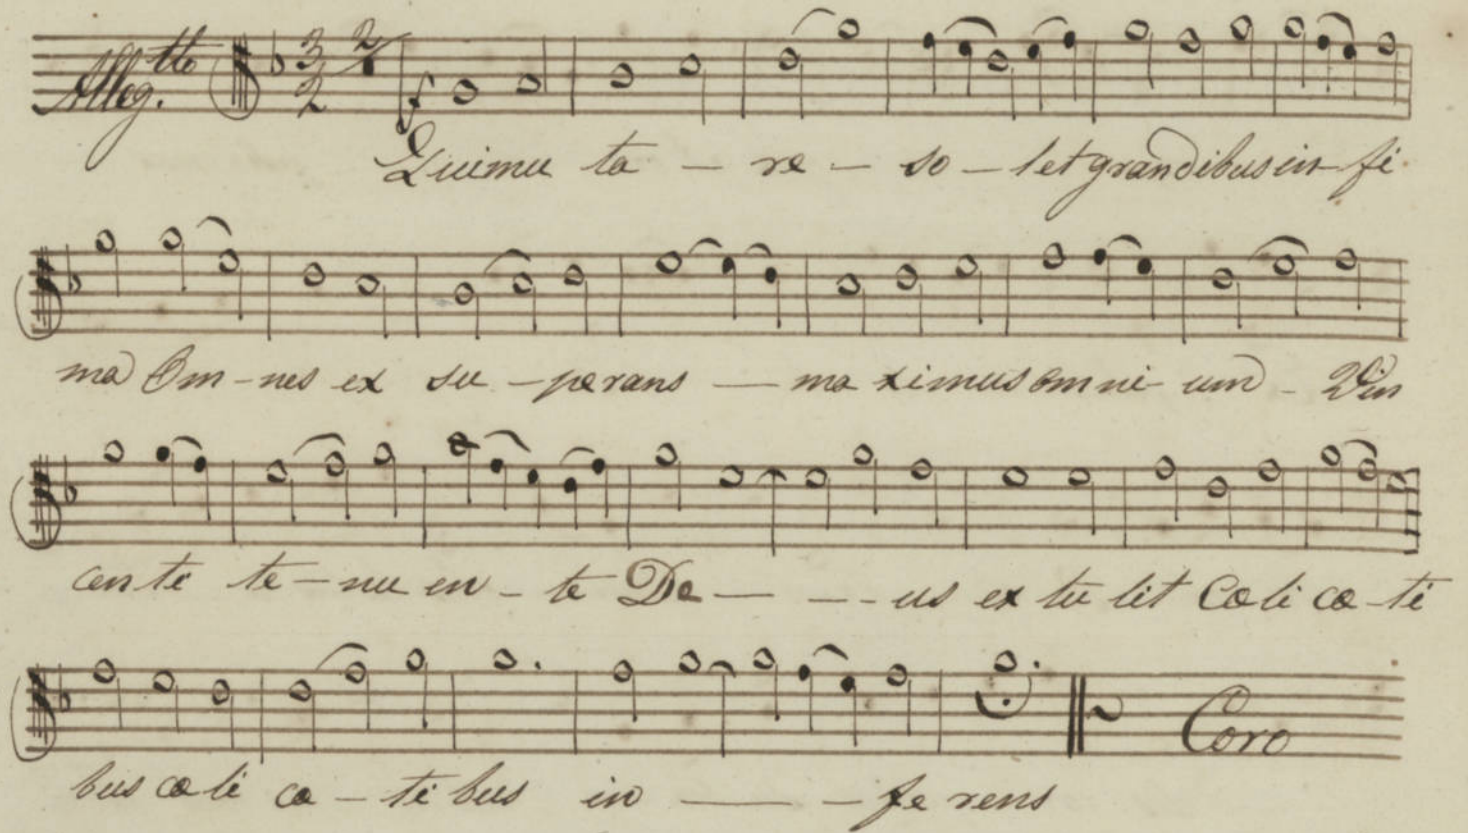 Alleg.tto 3 2 2 f
Quimu ta — re — so — let grandibus in fi
ma Om-nes ex su -perans — ma ximus omni- um - Vin
cen te te-nu en-te De — — us ex tu lit Cœli co-ti
bus cœli co-ti bus in — — fe rens
Coro